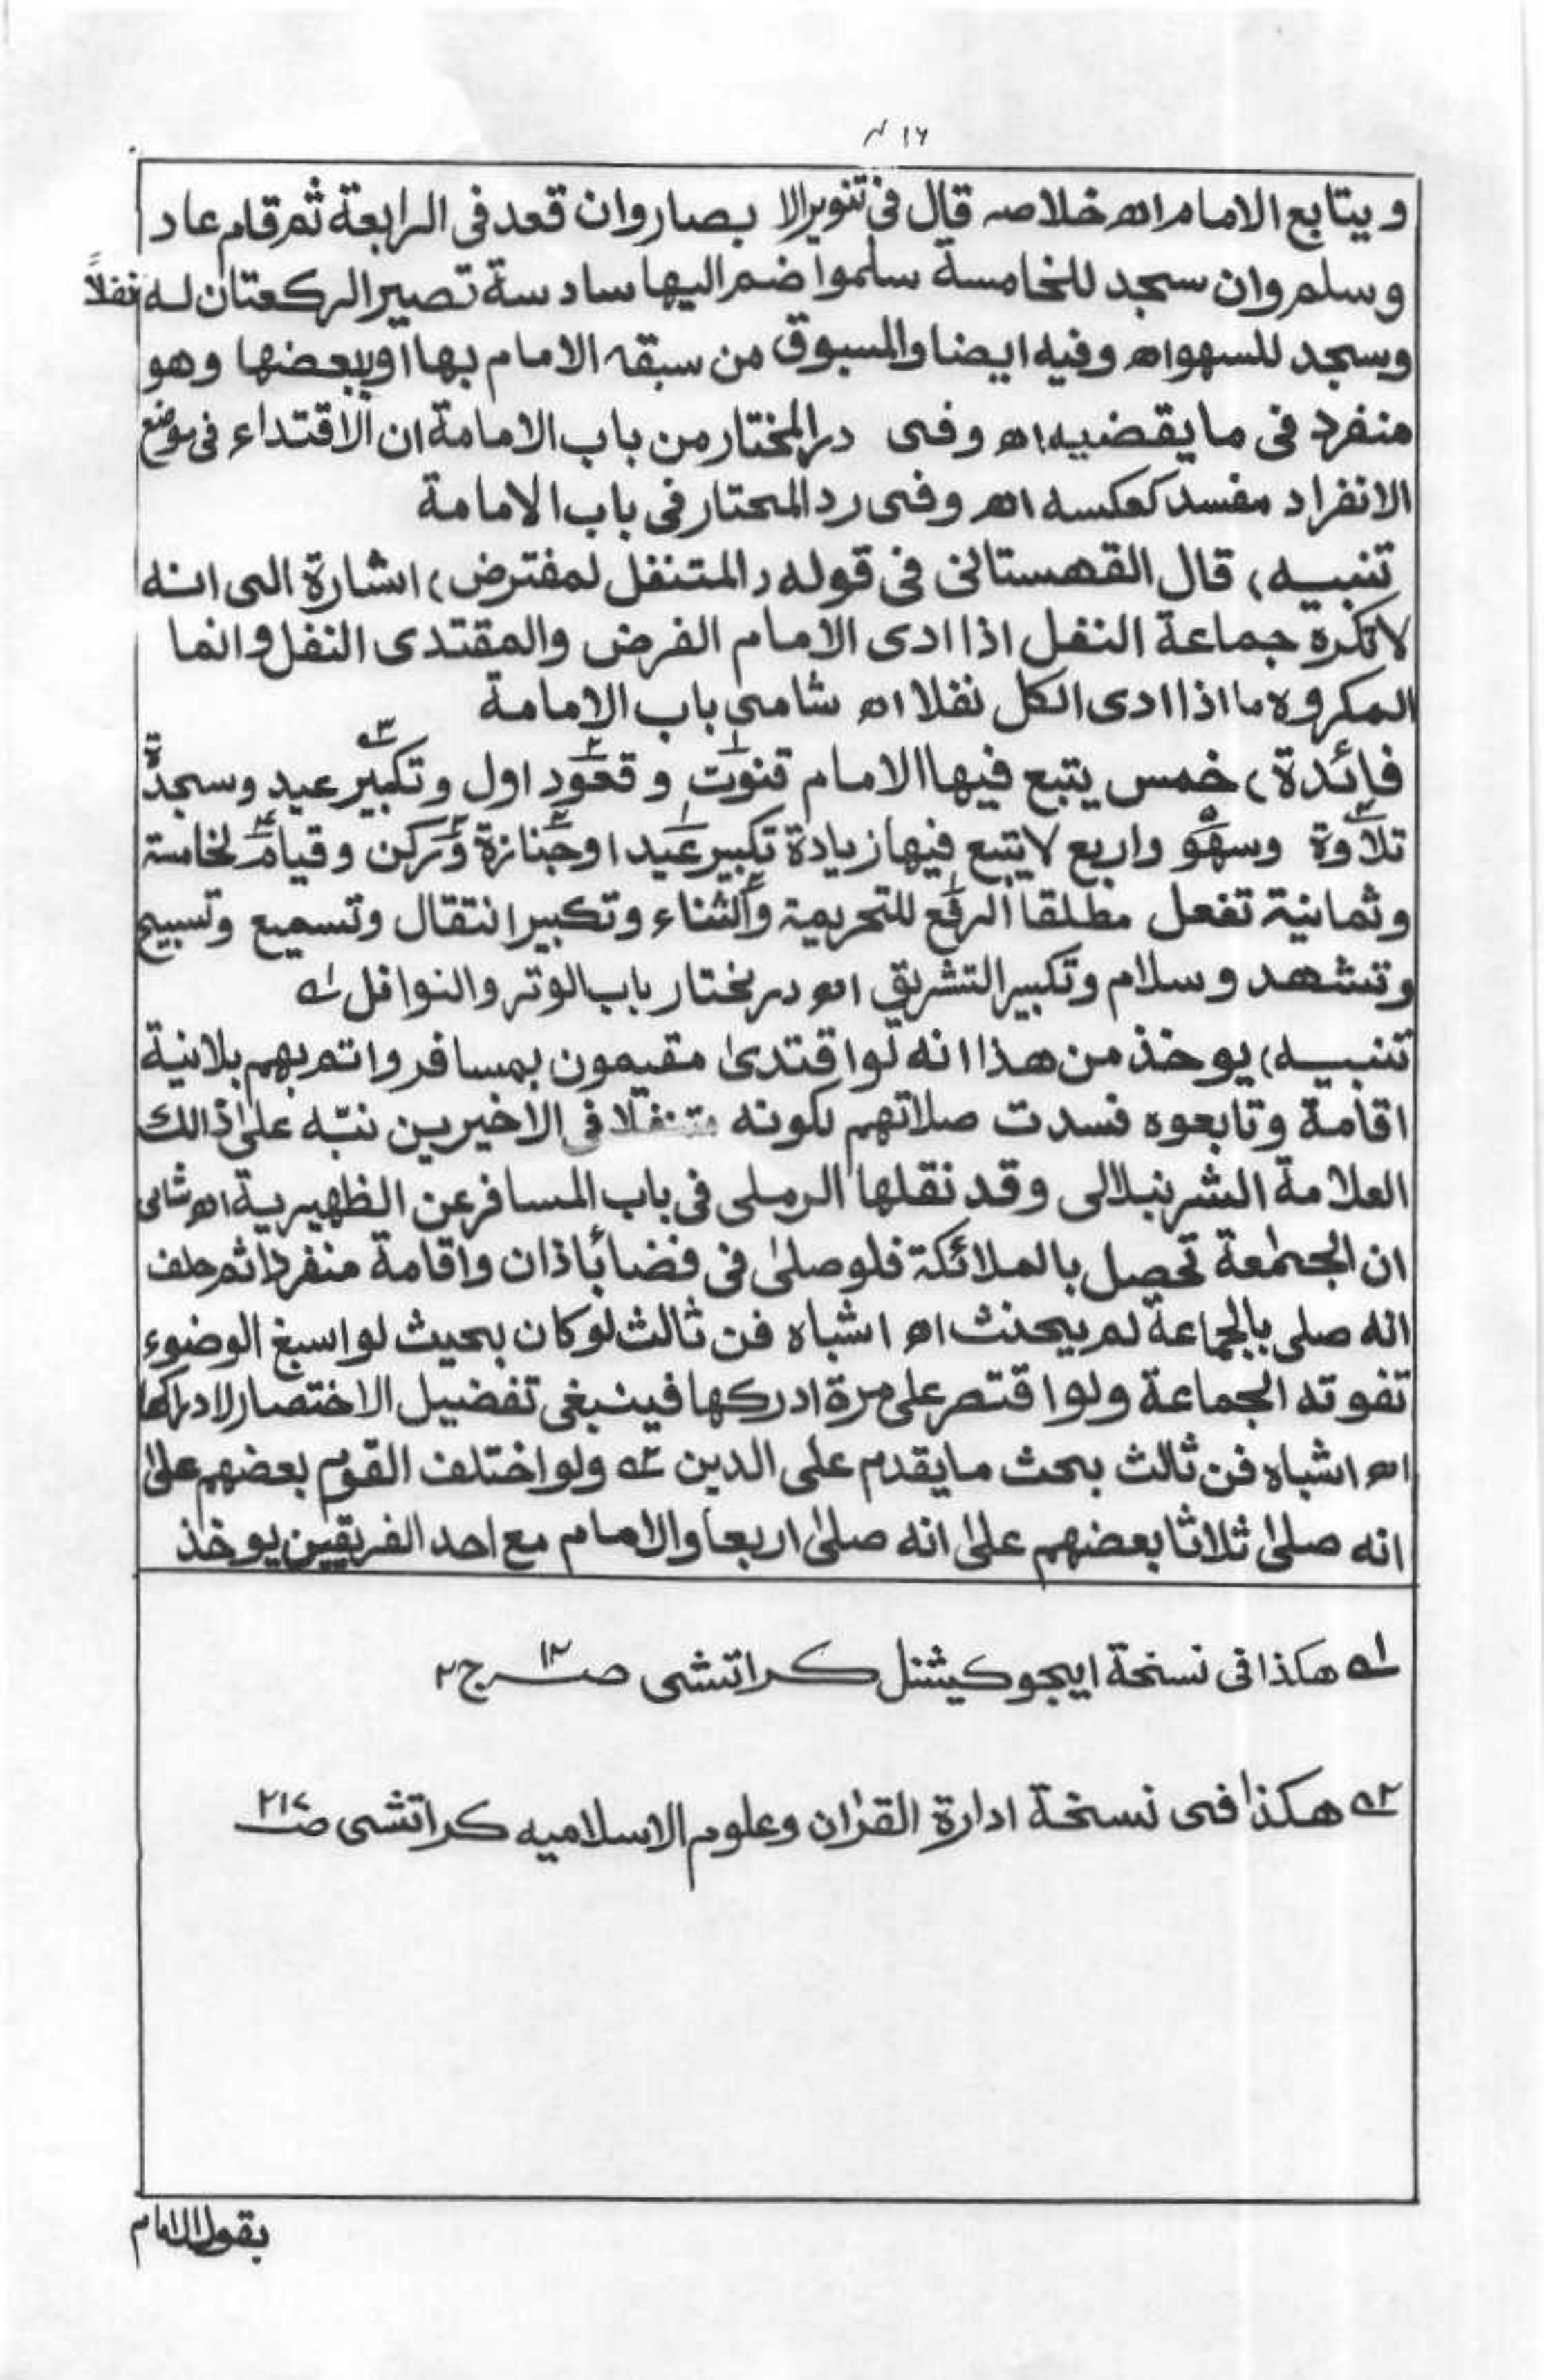 ١٦
ويتابع الامام اه خلاصه قال فى تنوير الا بصار وان قعد فى الرابعة ثم قام عاد
وسلم وان سجد للخامسة سلموا ضم اليها سادسة تصير الركعتان له نفلاً
وسجد للسهو اه وفيه ايضا والمسبوق من سبقه الامام بها او ببعضها وهو
منفرد فى ما يقضيه اه وفى در المختار من باب الامامة ان الاقتداء فى موضع
الانفراد مفسد كعكسه اه وفى رد المحتار فى باب الامامة
تنبيه) قال القهستانى فى قوله (المتنفل لمفترض) اشارة الى انه
لا تكره جماعة النفل اذا ادى الامام الفرض والمقتدى النفل وانما
المكروه ما اذا ادى الكل نفلا اه شامى باب الامامة
فائدة) خمس يتبع فيها الامام قنوت١ و قعود٢ اول و تكبير٣ عيد وسجدة
تلاوة٤ وسهو٥ واربع لا يتبع فيها زيادة تكبير عيد١ او جنازة٢ وركن٣ وقيام٤ لخامسة
وثمانية تفعل مطلقا الرفع١ للتحريمة والثناء٢ وتكبير انتقال وتسميع وتسبيح
وتشهد وسلام وتكبير التشريق اه در مختار باب الوتر والنوافل ١ه
تنبيه) يوخذ من هذا انه لو اقتدى مقيمون بمسافر واتم بهم بلانية
اقامة وتابعوه فسدت صلاتهم لكونه متنفلا فى الاخيرين نبّه على ذالك
العلامة الشرنبلالى وقد نقلها الرملى فى باب المسافر عن الظهيرية اه شامى
ان الجماعة تحصل بالملائكة فلو صلى فى فضا بأذان واقامة منفردا ثم حلف
انه صلى بالجماعة لم يحنث اه اشباه فن ثالث لو كان بحيث لو اسبغ الوضوء
تفوته الجماعة ولو اقتصر على مرة ادركها فينبغى تفضيل الاختصار لادراكها
اه اشباه فن ثالث بحث ما يقدم على الدين ٢ه ولو اختلف القوم بعضهم على
انه صلى ثلاثا بعضهم على انه صلى اربعا والامام مع احد الفريقين يوخذ
١ه هكذا فى نسخة ايجوكيشنل كراتشى صـ١٢ ج٢
٢ه هكذا فى نسخة ادارة القران وعلوم الاسلاميه كراتشى صـ٢١٧
بقول الامام